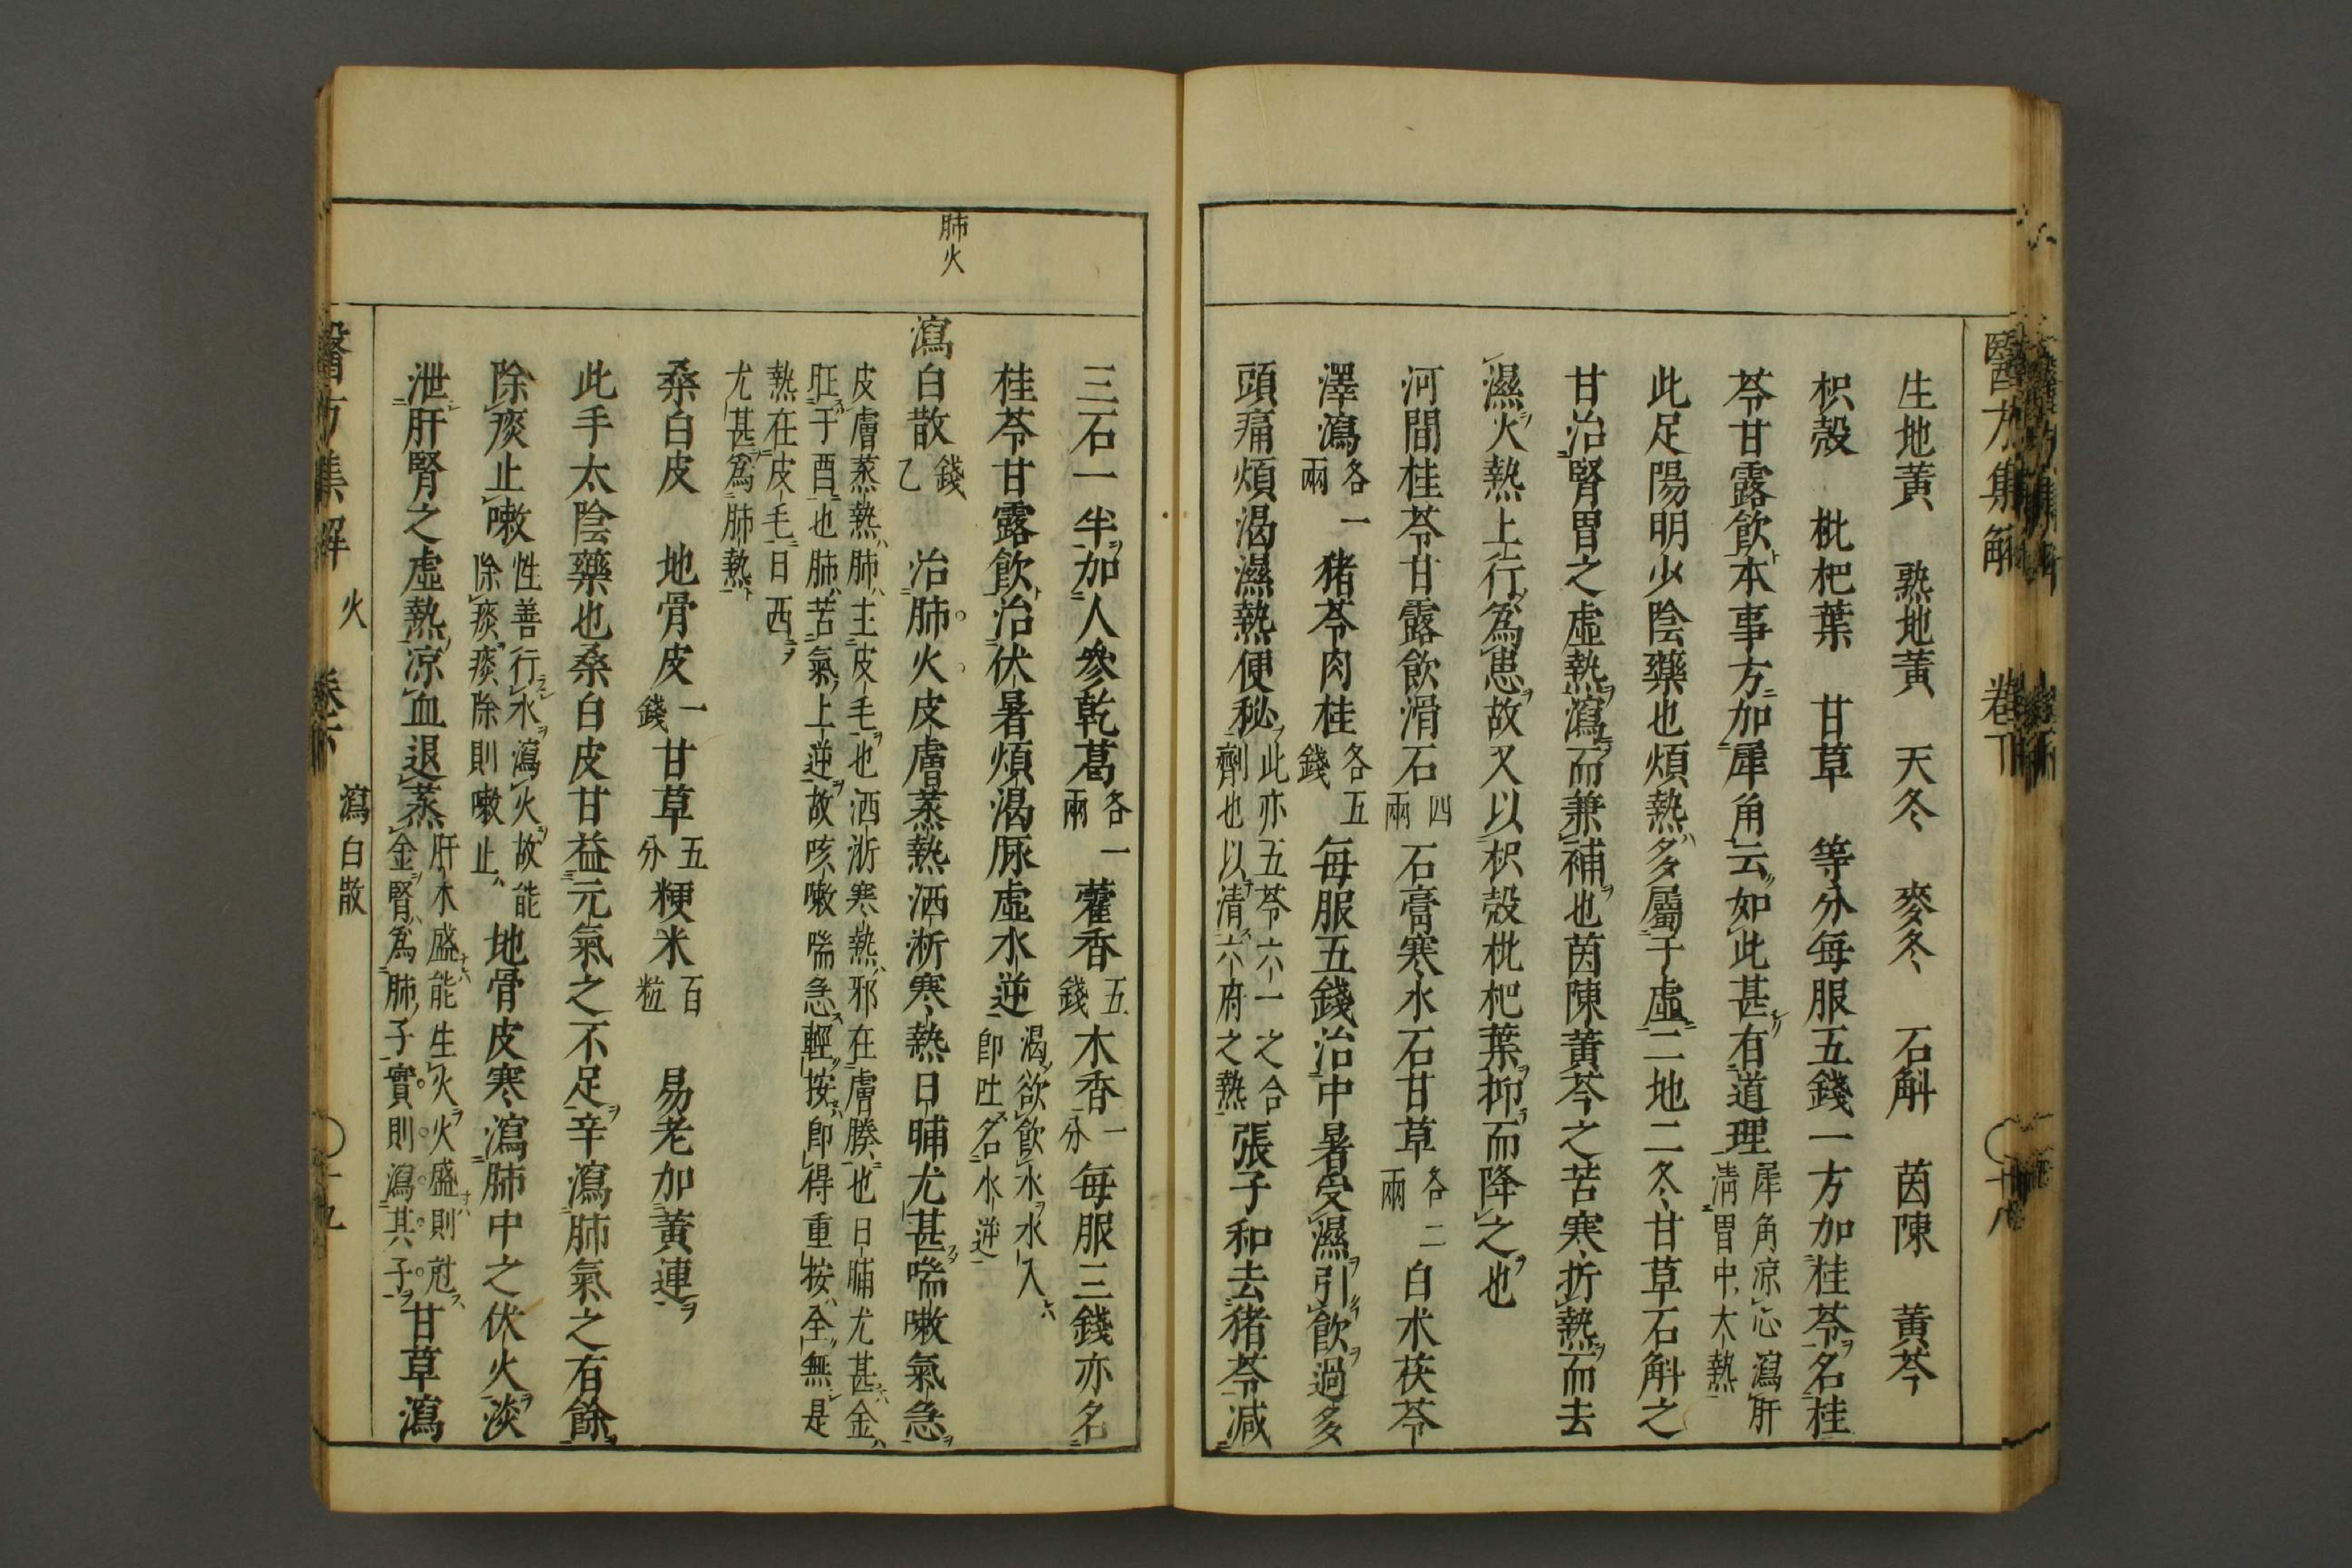 醫方集解 卷下 〇十八
生地黃 熟地黃 天冬 麥冬 石斛 茵陳 黃芩
枳殼 枇杷葉 甘草 等分每服五錢一方加桂苓名桂
苓甘露飲本事方加犀角云如此甚有道理犀角凉心瀉肝清胃中大熱
此足陽明少陰藥也煩熱多屬于虛二地二冬甘草石斛之
甘治腎胃之虛熱瀉而兼補也茵陳黃芩之苦寒折熱而去
濕火熱上行爲患故又以枳殼枇杷葉抑而降之也
河間桂苓甘露飲滑石四兩石膏寒水石甘草各二兩白朮茯苓
澤瀉各一兩猪苓肉桂各五錢每服五錢治中暑受濕引飲過多
頭痛煩渴濕熱便秘此亦五苓六一之合劑也以清六府之熱張子和去猪苓減
三石一半加人參乾葛各一兩藿香五錢木香一分每服三錢亦名
桂苓甘露飲治伏暑煩渴脉虛水逆渴欲飲水水入即吐名水逆
肺火
瀉白散錢乙 治肺火皮膚蒸熱洒淅寒熱日晡尤甚喘嗽氣急
皮膚蒸熱肺主皮毛也洒淅寒熱邪在膚腠也日晡尤甚金
旺于酉也肺苦氣上逆故咳嗽喘急輕按即得重按全無是
熱在皮毛日西
尤甚爲肺熱
桑白皮 地骨皮一錢甘草五分粳米百粒 易老加黃連
此手太陰藥也桑白皮甘益元氣之不足辛瀉肺氣之有餘
除痰止嗽性善行水瀉火故能除痰痰除則嗽止地骨皮寒瀉肺中之伏火淡
泄肝腎之虛熱凉血退蒸肝木盛能生火火盛則尅金腎爲肺子實則瀉其子甘草瀉
醫方集解 火 卷下 瀉白散 〇十九